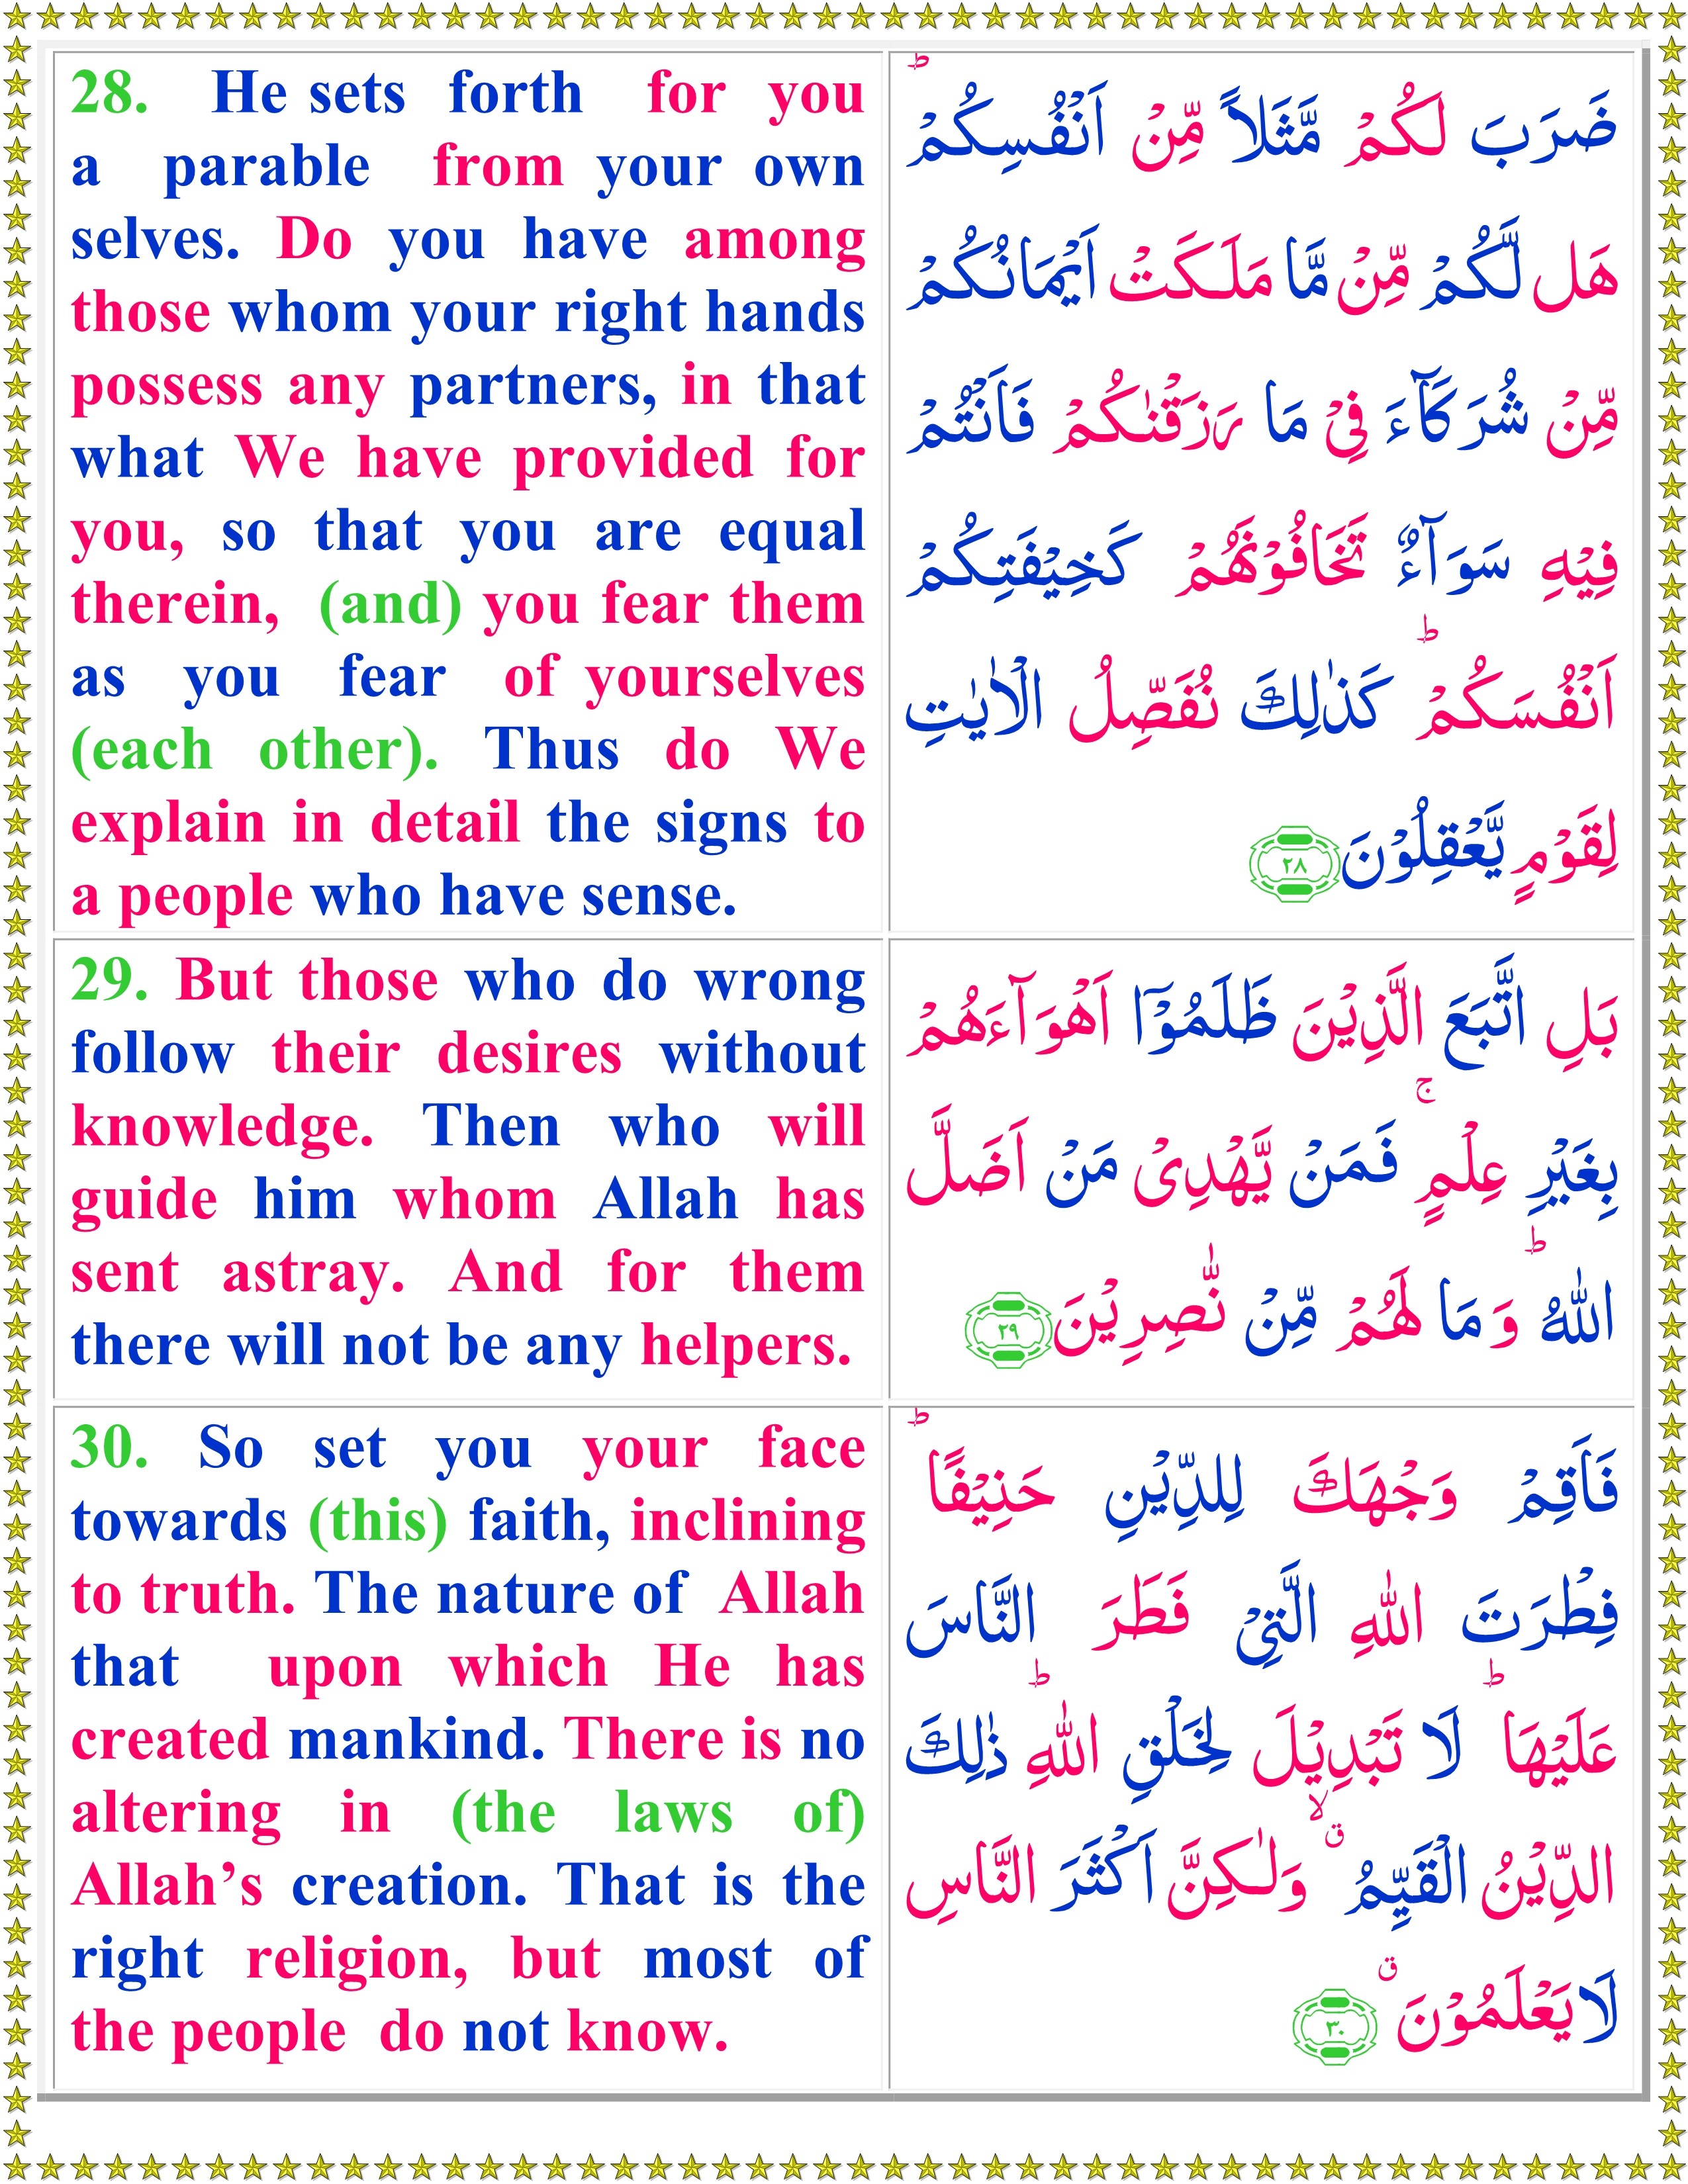 28. He sets forth for you
a parable from your own
selves. Do you have among
those whom your right hands
possess any partners, in that
what We have provided for
you, so that you are equal
therein, (and) you fear them
as you fear of yourselves
(each other). Thus do We
explain in detail the signs to
a people who have sense.
ضَرَبَ لَكُمْ مَّثَلاً مِّنْ اَنْفُسِكُمْ ؕ
هَل لَّكُمْ مِّنْ مَّا مَلَكَتْ اَيْمَانُكُمْ
مِّنْ شُرَكَآءَ فِىْ مَا رَزَقْنٰكُمْ فَاَنْتُمْ
فِيْهِ سَوَآءٌ تَخَافُوْنَهُمْ كَخِيْفَتِكُمْ
اَنْفُسَكُمْ ؕ كَذٰلِكَ نُفَصِّلُ الْاٰيٰتِ
لِقَوْمٍ يَّعْقِلُوْنَ ٢٨
29. But those who do wrong
follow their desires without
knowledge. Then who will
guide him whom Allah has
sent astray. And for them
there will not be any helpers.
بَلِ اتَّبَعَ الَّذِيْنَ ظَلَمُوْۤا اَهْوَآءَهُمْ
بِغَيْرِ عِلْمٍ ۚ فَمَنْ يَّهْدِىْ مَنْ اَضَلَّ
اللّٰهُ ؕ وَمَا لَهُمْ مِّنْ نّٰصِرِيْنَ ٢٩
30. So set you your face
towards (this) faith, inclining
to truth. The nature of Allah
that upon which He has
created mankind. There is no
altering in (the laws of)
Allah’s creation. That is the
right religion, but most of
the people do not know.
فَاَقِمْ وَجْهَكَ لِلدِّيْنِ حَنِيْفًا ؕ
فِطْرَتَ اللّٰهِ الَّتِىْ فَطَرَ النَّاسَ
عَلَيْهَا ؕ لَا تَبْدِيْلَ لِخَلْقِ اللّٰهِ ؕ ذٰلِكَ
الدِّيْنُ الْقَيِّمُ ۙ ق وَلٰكِنَّ اَكْثَرَ النَّاسِ
لَا يَعْلَمُوْنَ ق ٣٠